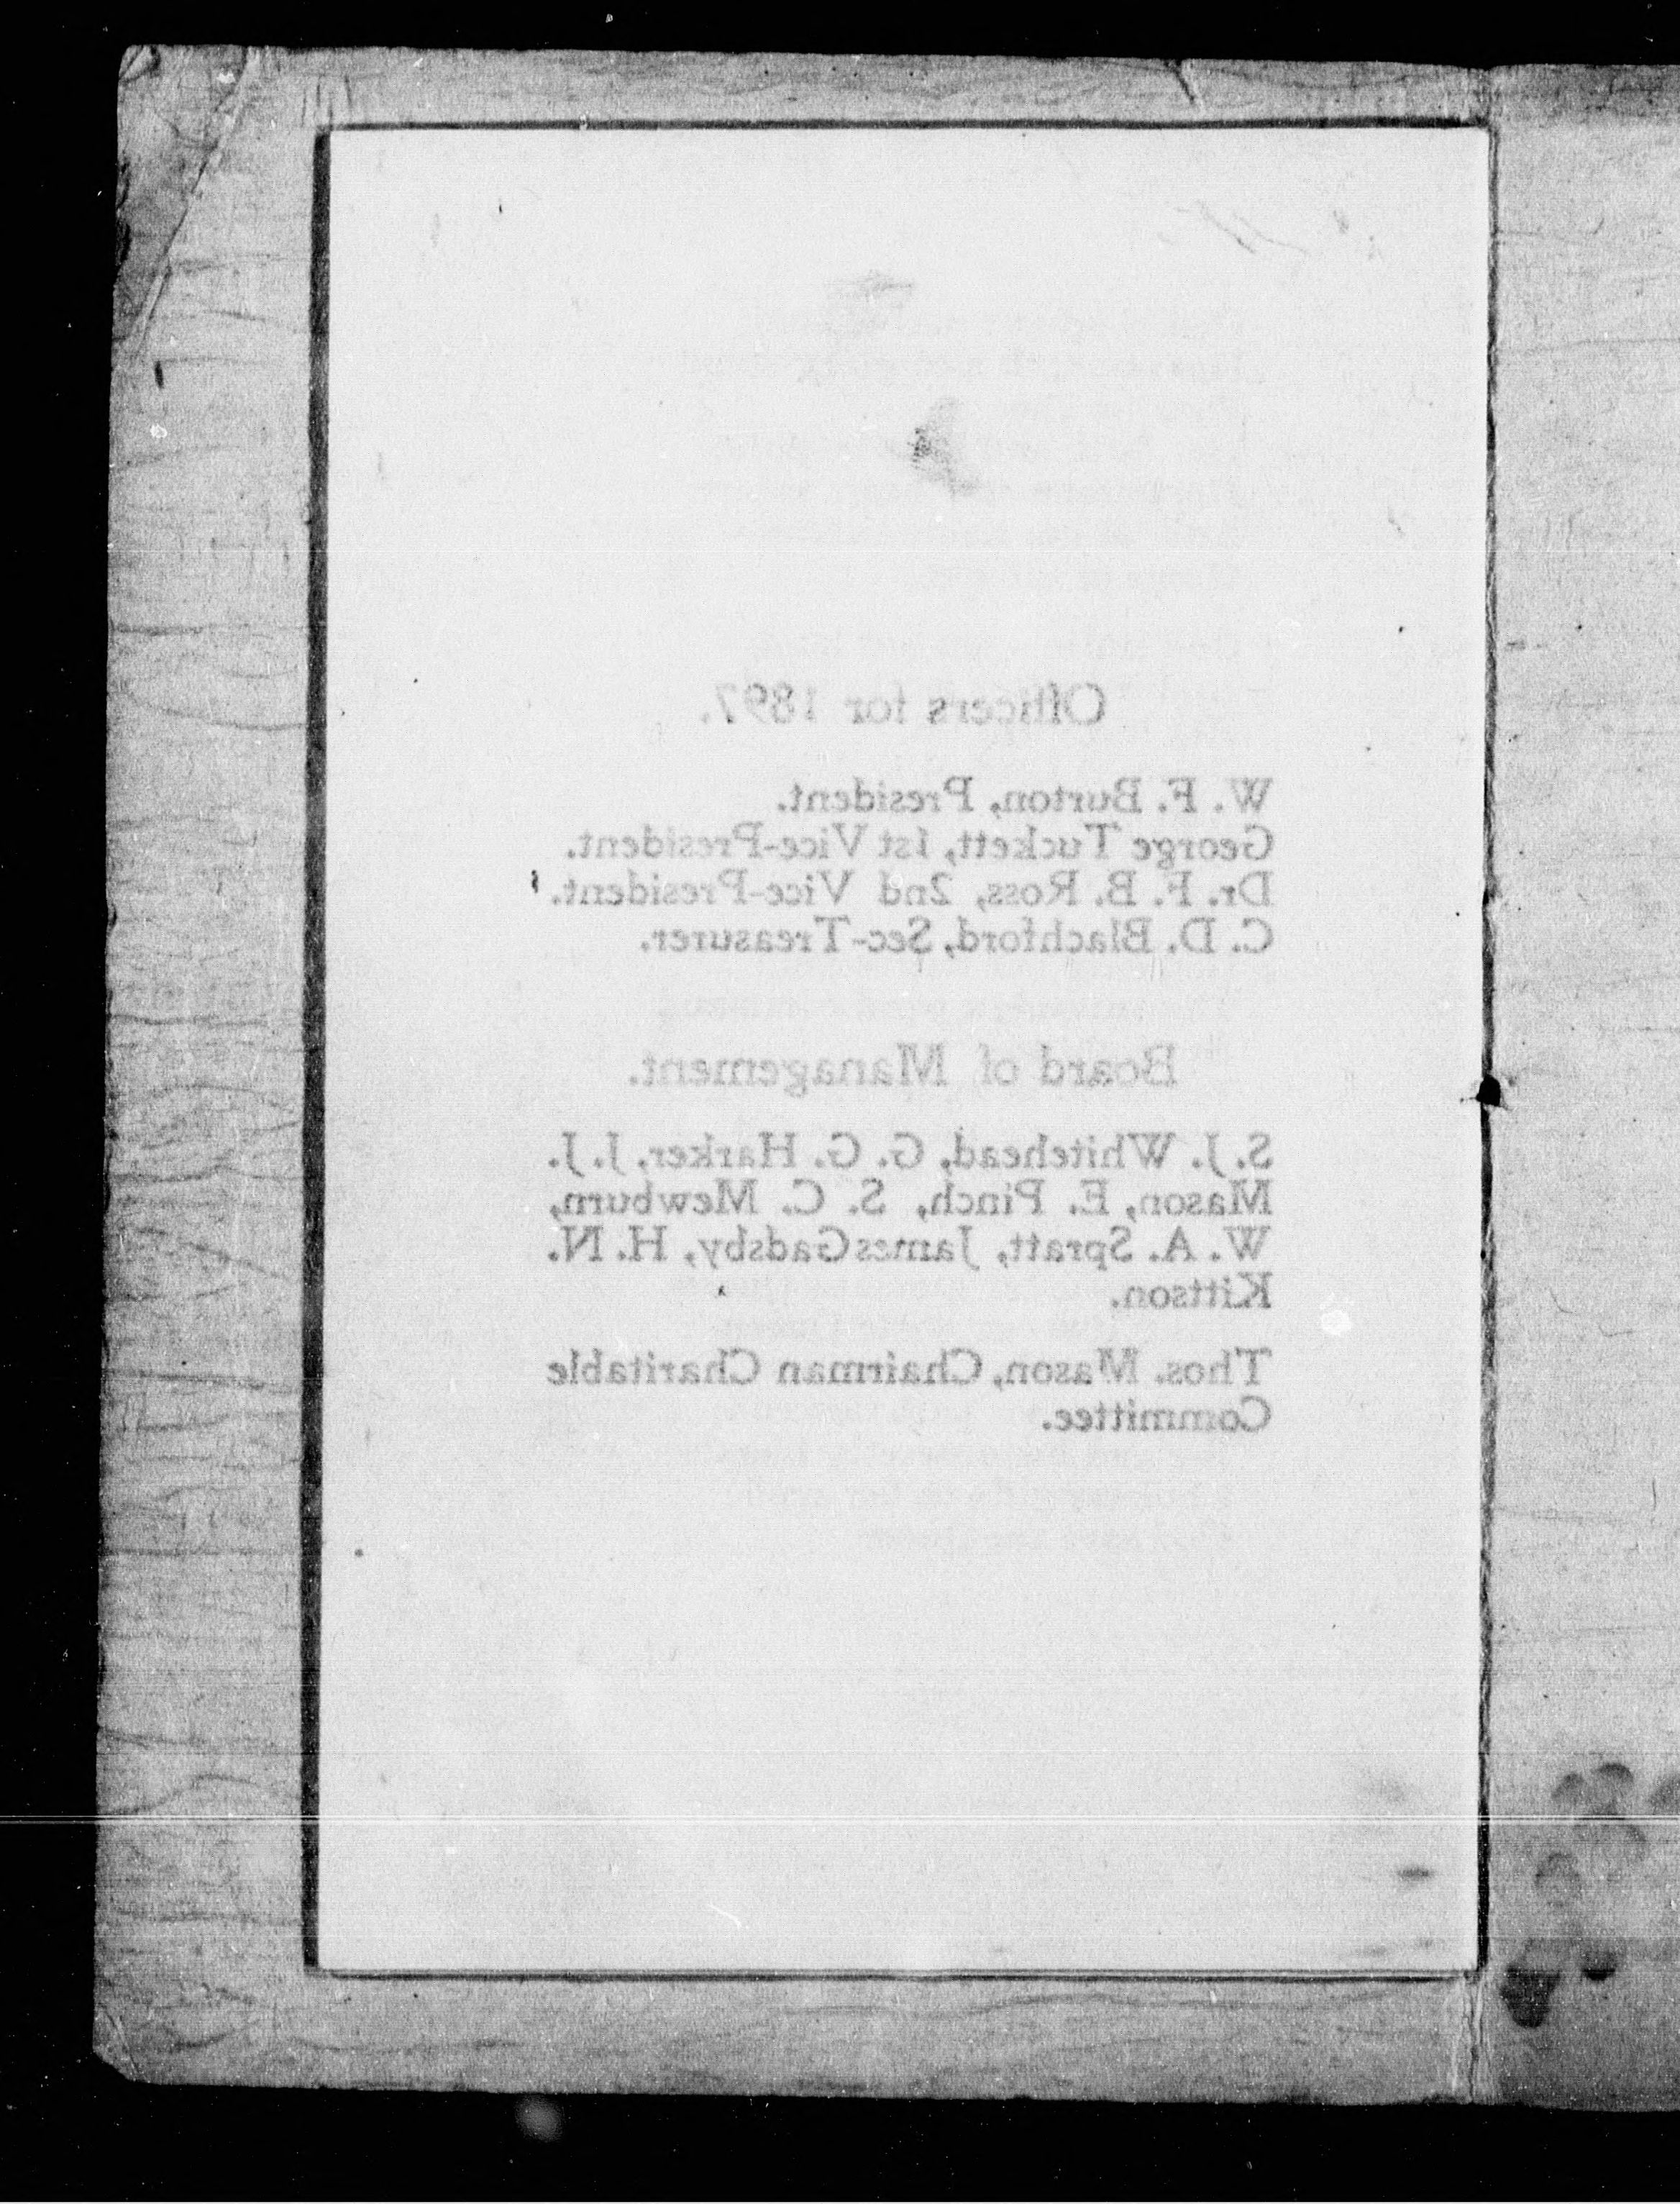 Officers for 1897.
W. F. Burton, President.
George Tuckett, 1st Vice-President.
Dr. F. B. Ross, 2nd Vice-President.
C. D. Blachford, Sec-Treasurer.
Board of Management.
S. J. Whitehead, G. G. Harker, J. J.
Mason, E. Pinch, S. C. Mewburn,
W. A. Spratt, James Gadsby, H. N.
Kittson.
Thos. Mason, Chairman Charitable
Committee.